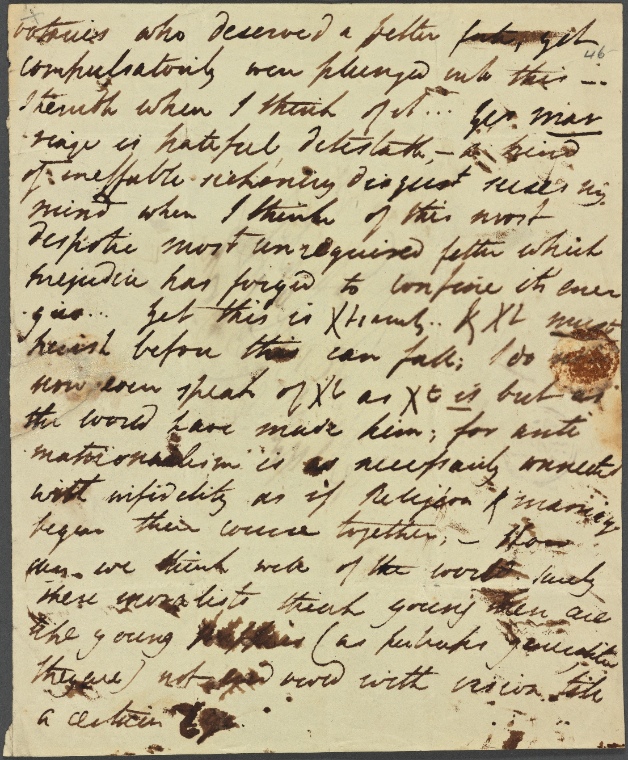 votaries who deserved a better fate, yet
46
compulsatorily were plunged into this —
I tremble when I think of it... Yes mar
riage is hateful detestable, — a kind
of ineffable sickening disgust seizes my
mind when I think of this most
despotic most unrequired fetter which
prejudice has forged to confine its ener
gies... Yet this is Xtianity.. & Xt must
perish before this can fall; I do
now even speak of Xt as Xt is but as
the world have made him; for anti
matrimonialism is as necessarily connected
with infidelity as if Religion & marriage
began their course together, — How
can we think well of the world surely
these moralists think young men are
like young puppies (as perhaps generally
they are) not endowed with vision till
a certain age